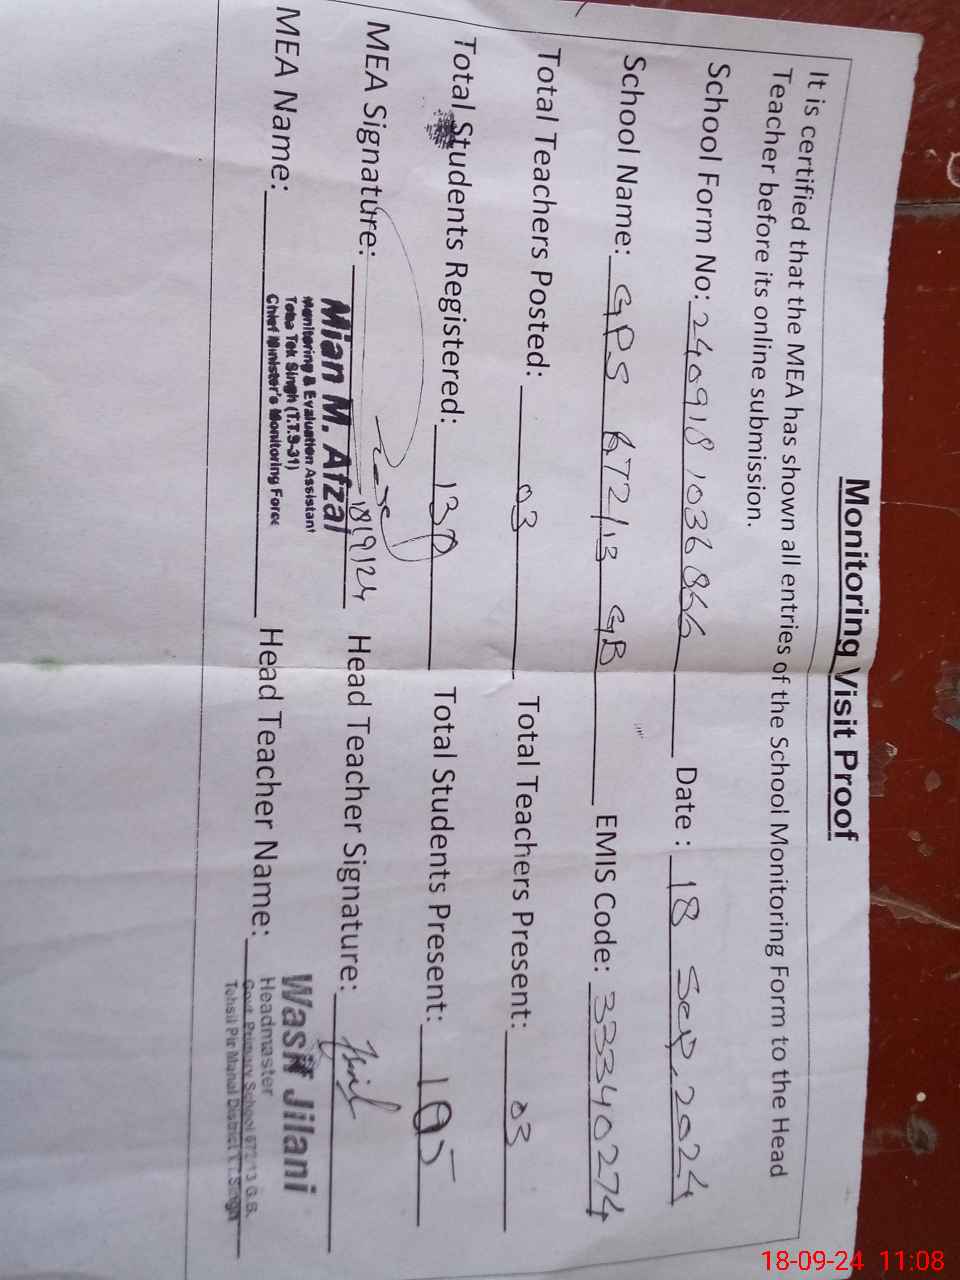 Monitoring Visit Proof
It is certified that the MEA has shown all entries of the School Monitoring Form to the Head
Teacher before its online submission.
School Form No: 240918 1036866 Date : 18 Sep, 2024
School Name: GPS 672/13 GB EMIS Code: 33340274
Total Teachers Posted: 03 Total Teachers Present: 03
Total Students Registered: 130 Total Students Present: 105
MEA Signature: 18/9/24 Head Teacher Signature:
Mian M. Afzal
Monitoring & Evaluation Assistant
Toba Tek Singh (T.T.S-31)
Chief Minister's Monitoring Force
MEA Name: Head Teacher Name:
Wasif Jilani
Headmaster
Govt. Primary School 672/13 G.B.
Tehsil Pir Mahal District T.T.Singh
18-09-24 11:08